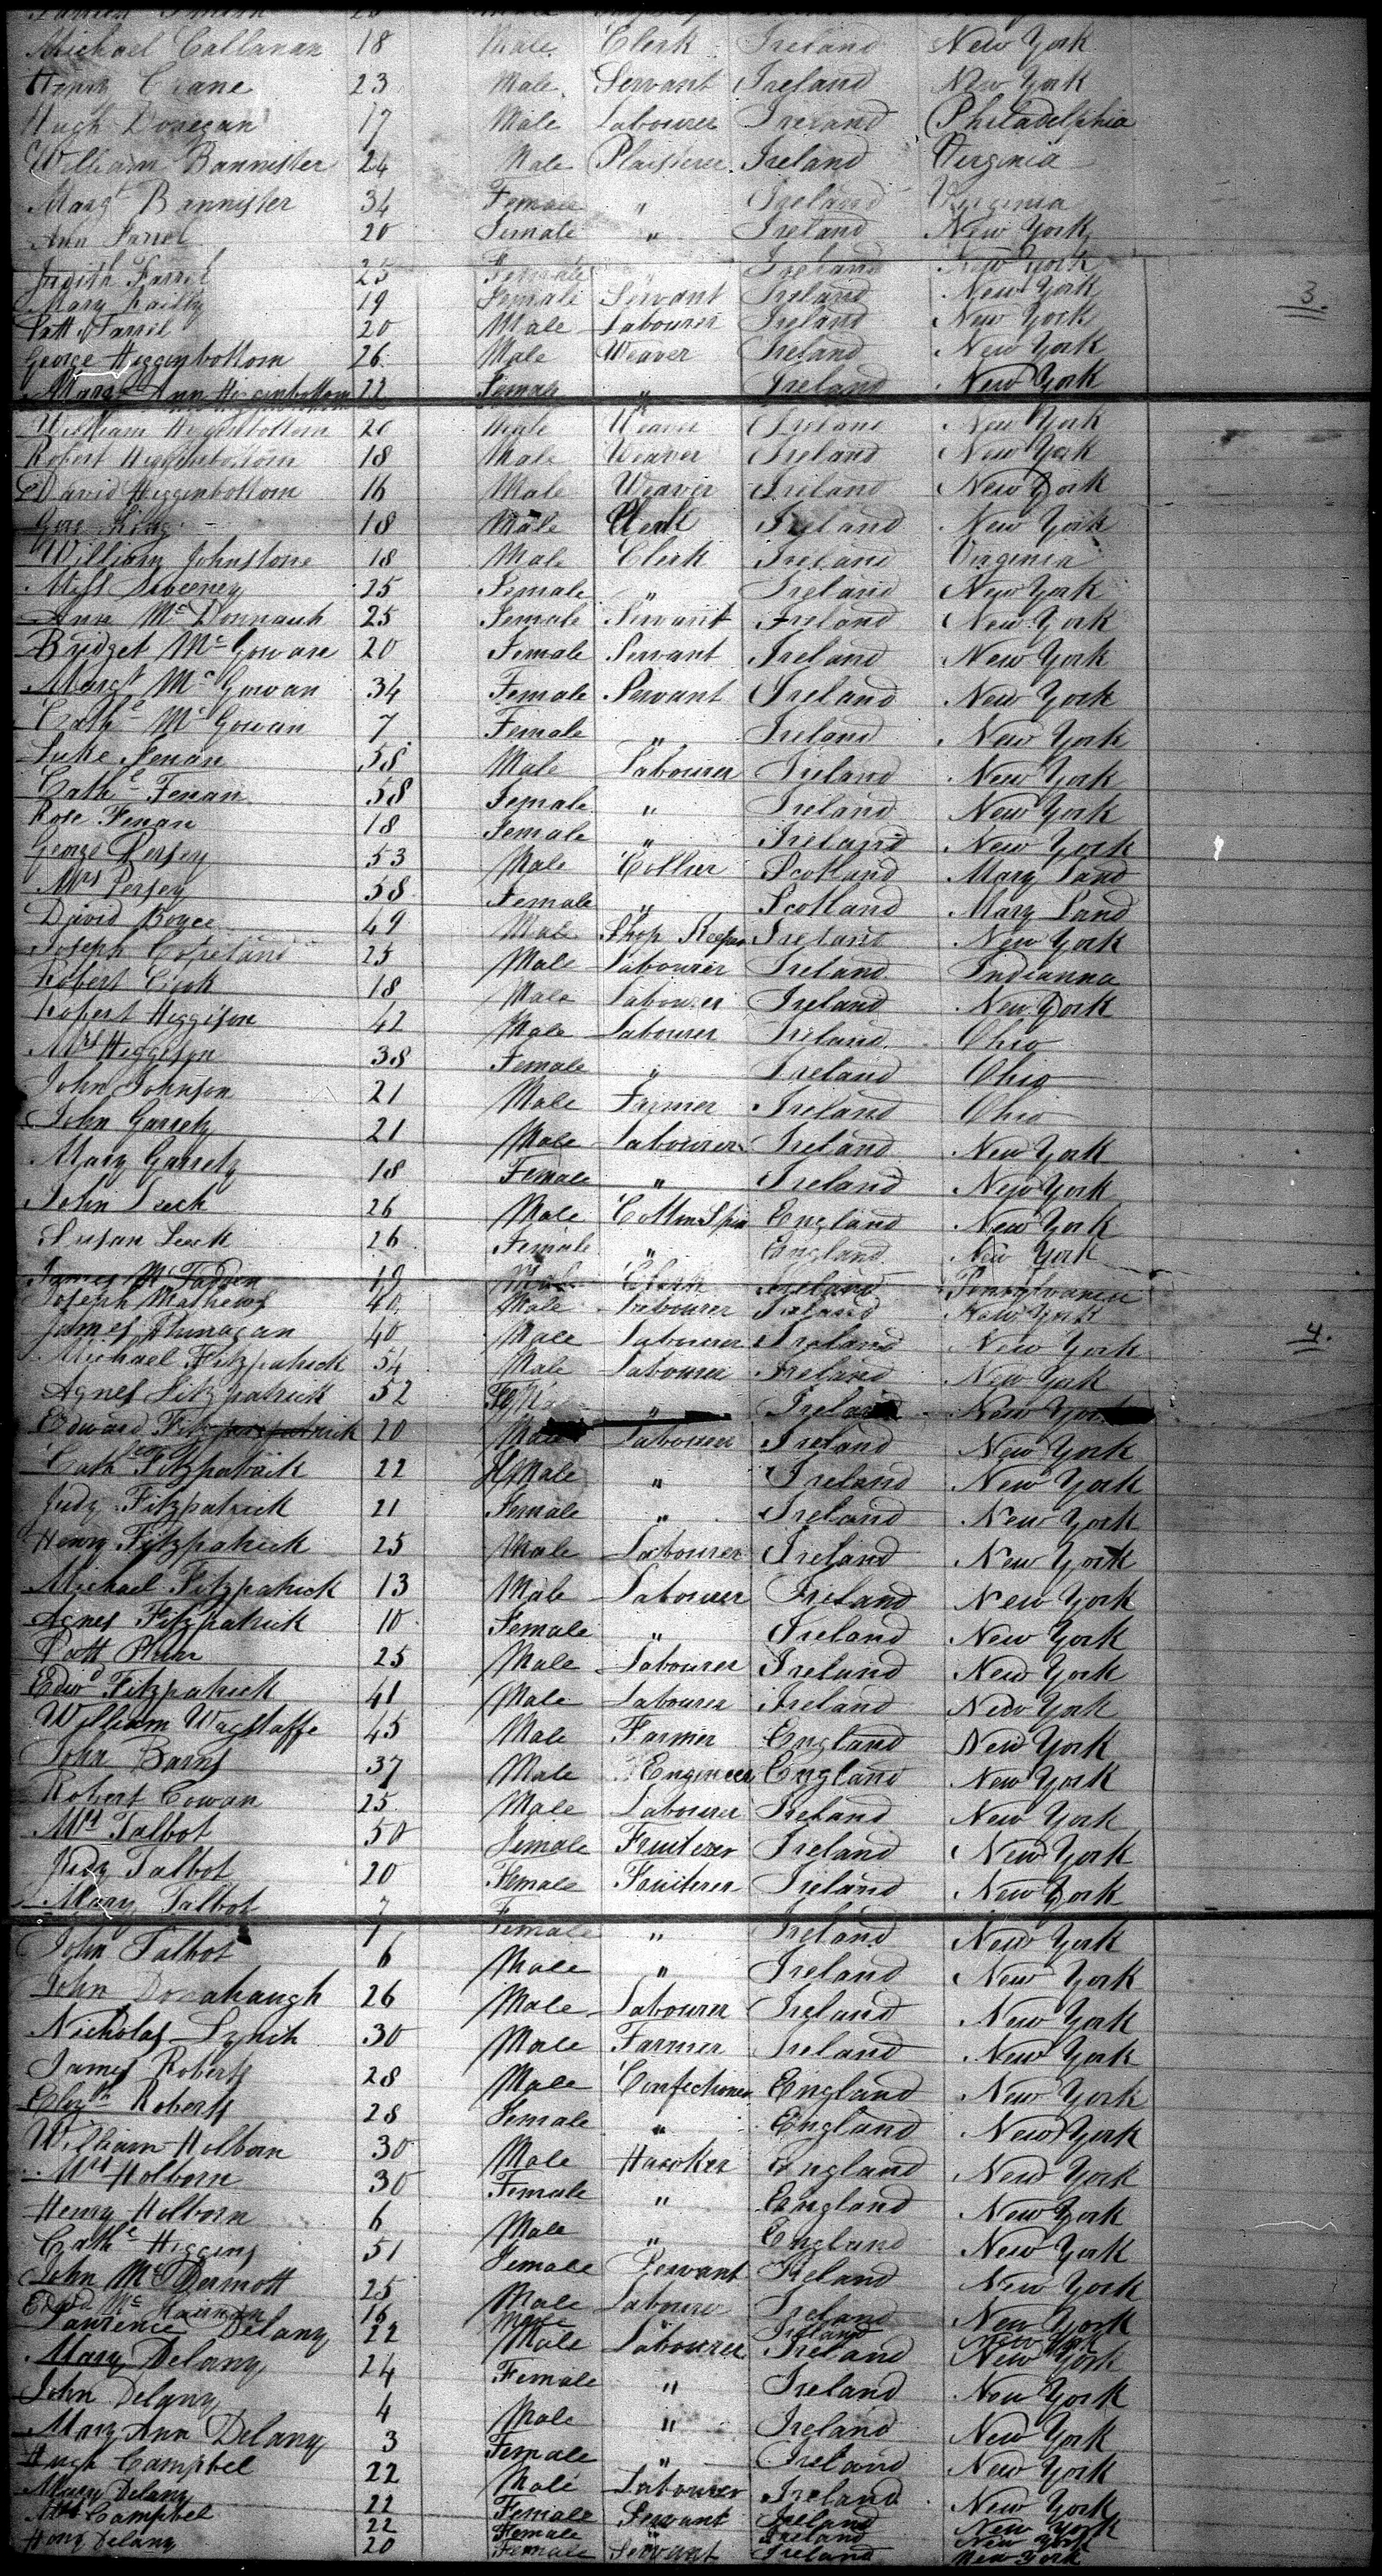 Michael Callanan 18 Male Clerk Ireland New York
Henry Crane 23 Male Servant Ireland New York
Hugh Donegan 17 Male Labourer Ireland Philadelphia
William Bannister 24 Male Plaisterer Ireland Virginia
Margt Bannister 34 Female " Ireland Virginia
Ann Farrel 20 Female " Ireland New York
Judith Farrel 25 Female Ireland New York
Mary 19 Female Servant Ireland New York
3.
Patt Farril 20 Male Labourer Ireland New York
George Higgenbottom 26 Male Weaver Ireland New York
Margt Ann Higgenbottom 22 Female " Ireland New York
William Higgenbottom 20 Male Weaver Ireland New York
Robert Higgenbottom 18 Male Weaver Ireland New York
David Higgenbottom 16 Male Weaver Ireland New York
Geo King 18 Male Clerk Ireland New York
William Johnstone 18 Male Clerk Ireland Virginia
Miss Sweeney 25 Female " Ireland New York
Ann Mc Donnauh 25 Female Servant Ireland New York
Bridget Mc Gowan 20 Female Servant Ireland New York
Margt Mc Gowan 34 Female Servant Ireland New York
Cathe Mc Gowan 7 Female " Ireland New York
Luke Fenan 58 Male Labourer Ireland New York
Cathe Fenan 58 Female " Ireland New York
Rose Fenan 18 Female " Ireland New York
George Persey 53 Male Collier Scotland Mary Land
Mrs Persey 58 Female " Scotland Mary Land
David Boyce 49 Male Shop Keeper Ireland New York
Joseph Copeland 25 Male Labourer Ireland Indianna
Robert Cook 18 Male Labourer Ireland New York
Robert Higgison 42 Male Labourer Ireland Ohio
Mrs Higgison 38 Female " Ireland Ohio
John Johnson 21 Male Farmer Ireland Ohio
John Garrety 21 Male Labourer Ireland New York
Mary Garrety 18 Female " Ireland New York
John Leek 26 Male Cotton Spin England New York
Susan Leek 26 Female " England New York
James Mc Fadden 19 Male Clerk Ireland Pennsylvania
Joseph Mathews 40 Male Labourer Ireland New York
James Flunagan 40 Male Labourer Ireland New York
4.
Michael Fitzpatrick 54 Male Labourer Ireland New York
Agnes Fitzpatrick 52 " Ireland New York
Edward Fitzpatrick 20 Male Labourer Ireland New York
Cath Fitzpatrick 22 Female " Ireland New York
Judy Fitzpatrick 21 Female " Ireland New York
Henry Fitzpatrick 25 Male Labourer Ireland New York
Michael Fitzpatrick 13 Male Labourer Ireland New York
Agnes Fitzpatrick 10 Female " Ireland New York
Patt 25 Male Labourer Ireland New York
Edwd Fitzpatrick 41 Male Labourer Ireland New York
William Wagstaffe 45 Male Farmer England New York
John Barns 37 Male Engineer England New York
Robert Cowan 25 Male Labourer Ireland New York
Mrs Talbot 50 Female Fruiterer Ireland New York
Judy Talbot 20 Female Fruiterer Ireland New York
Mary Talbot 7 Female " Ireland New York
John Talbot 6 Male " Ireland New York
John Donahaugh 26 Male Labourer Ireland New York
Nicholas Lynch 30 Male Farmer Ireland New York
James Roberts 28 Male Confectioner England New York
Elizth Roberts 28 Female " England New York
William Holborn 30 Male Hawker England New York
Mrs Holborn 30 Female " England New York
Henry Holborn 6 Male " England New York
Cathe Higgins 51 Female Servant Ireland New York
John Mc Dermott 25 Male Labourer Ireland New York
Edwd Mc 16 Male " Ireland New York
Lawrence Delany 22 Male Labourer Ireland New York
Mary Delany 24 Female " Ireland New York
John Delany 4 Male " Ireland New York
Mary Ann Delany 3 Female " Ireland New York
Hugh Campbel 22 Male Labourer Ireland New York
Mary Delany 22 Female Servant Ireland New York
Mrs Campbel 22 Female " Ireland New York
Hony Delany 20 Female Servant Ireland New York